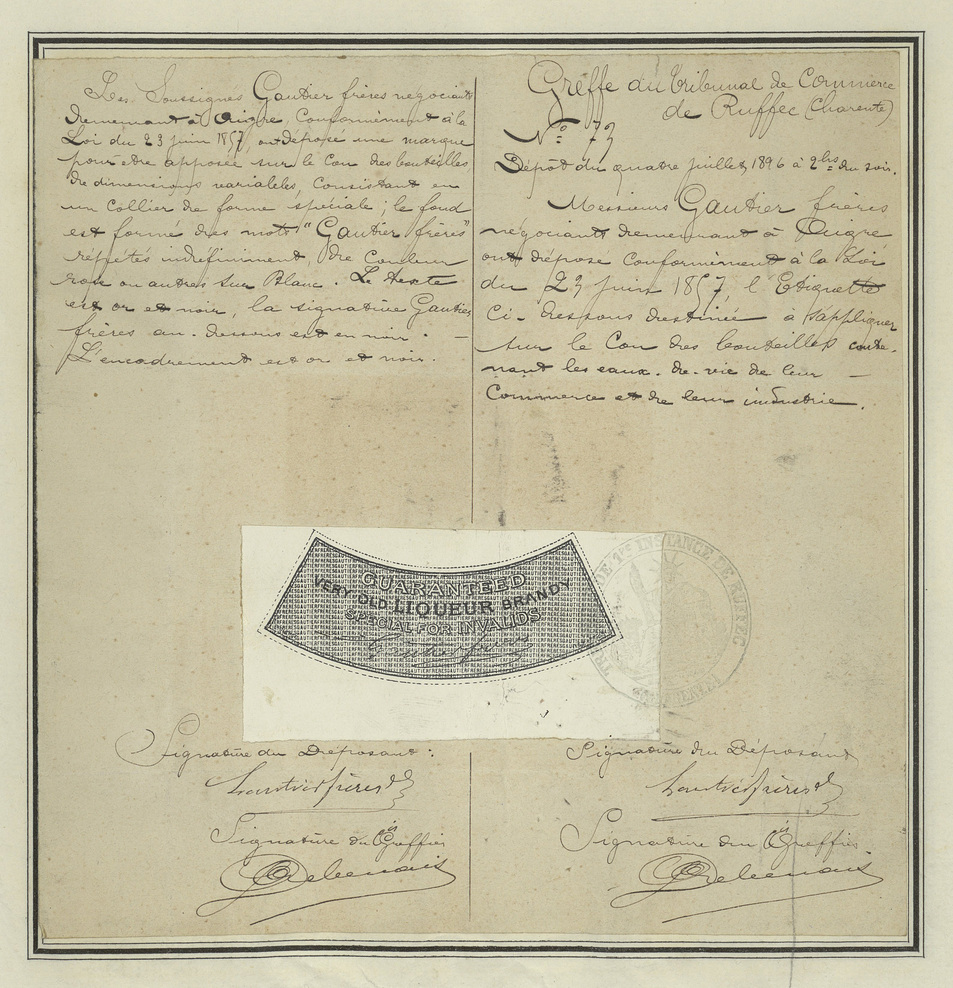 Les Soussignés Gautier frères négociants
demeurant à Aigre, Conformément à la
Loi du 23 juin 1857, ont déposé une marque
pour être apposée sur le Cou des bouteilles,
de dimensions variables, Consistant en
un Collier de forme spéciale ; le fond
est formé des mots "Gautier frères"
répétés indéfiniment, de Couleur
rose ou autres sur Blanc. Le texte
est or et noir, la signature Gautier
frères au-dessous est en noir. —
L'encadrement est or et noir.
Greffe du Tribunal de Commerce
de Ruffec (Charente)
No 73
Dépôt du quatre juillet 1896 à 2hrs du soir.
Messieurs Gautier frères
négociants demeurant à Aigre
ont déposé Conformément à la Loi
du 23 Juin 1857, l'Etiquette
Ci-dessous destinée à s'appliquer
sur le Cou des bouteilles conte-
nant les eaux-de-vie de leur —
Commerce et de leur industrie.
GUARANTEED
VERY OLD LIQUEUR BRANDY
SPECIAL FOR INVALIDS
Gautier frères
DE 1re INSTANCE DE RUFFEC
Signature du Déposant :
Gautier frères
Signature du Greffier
Signature du Déposant
Gautier frères
Signature du Greffier